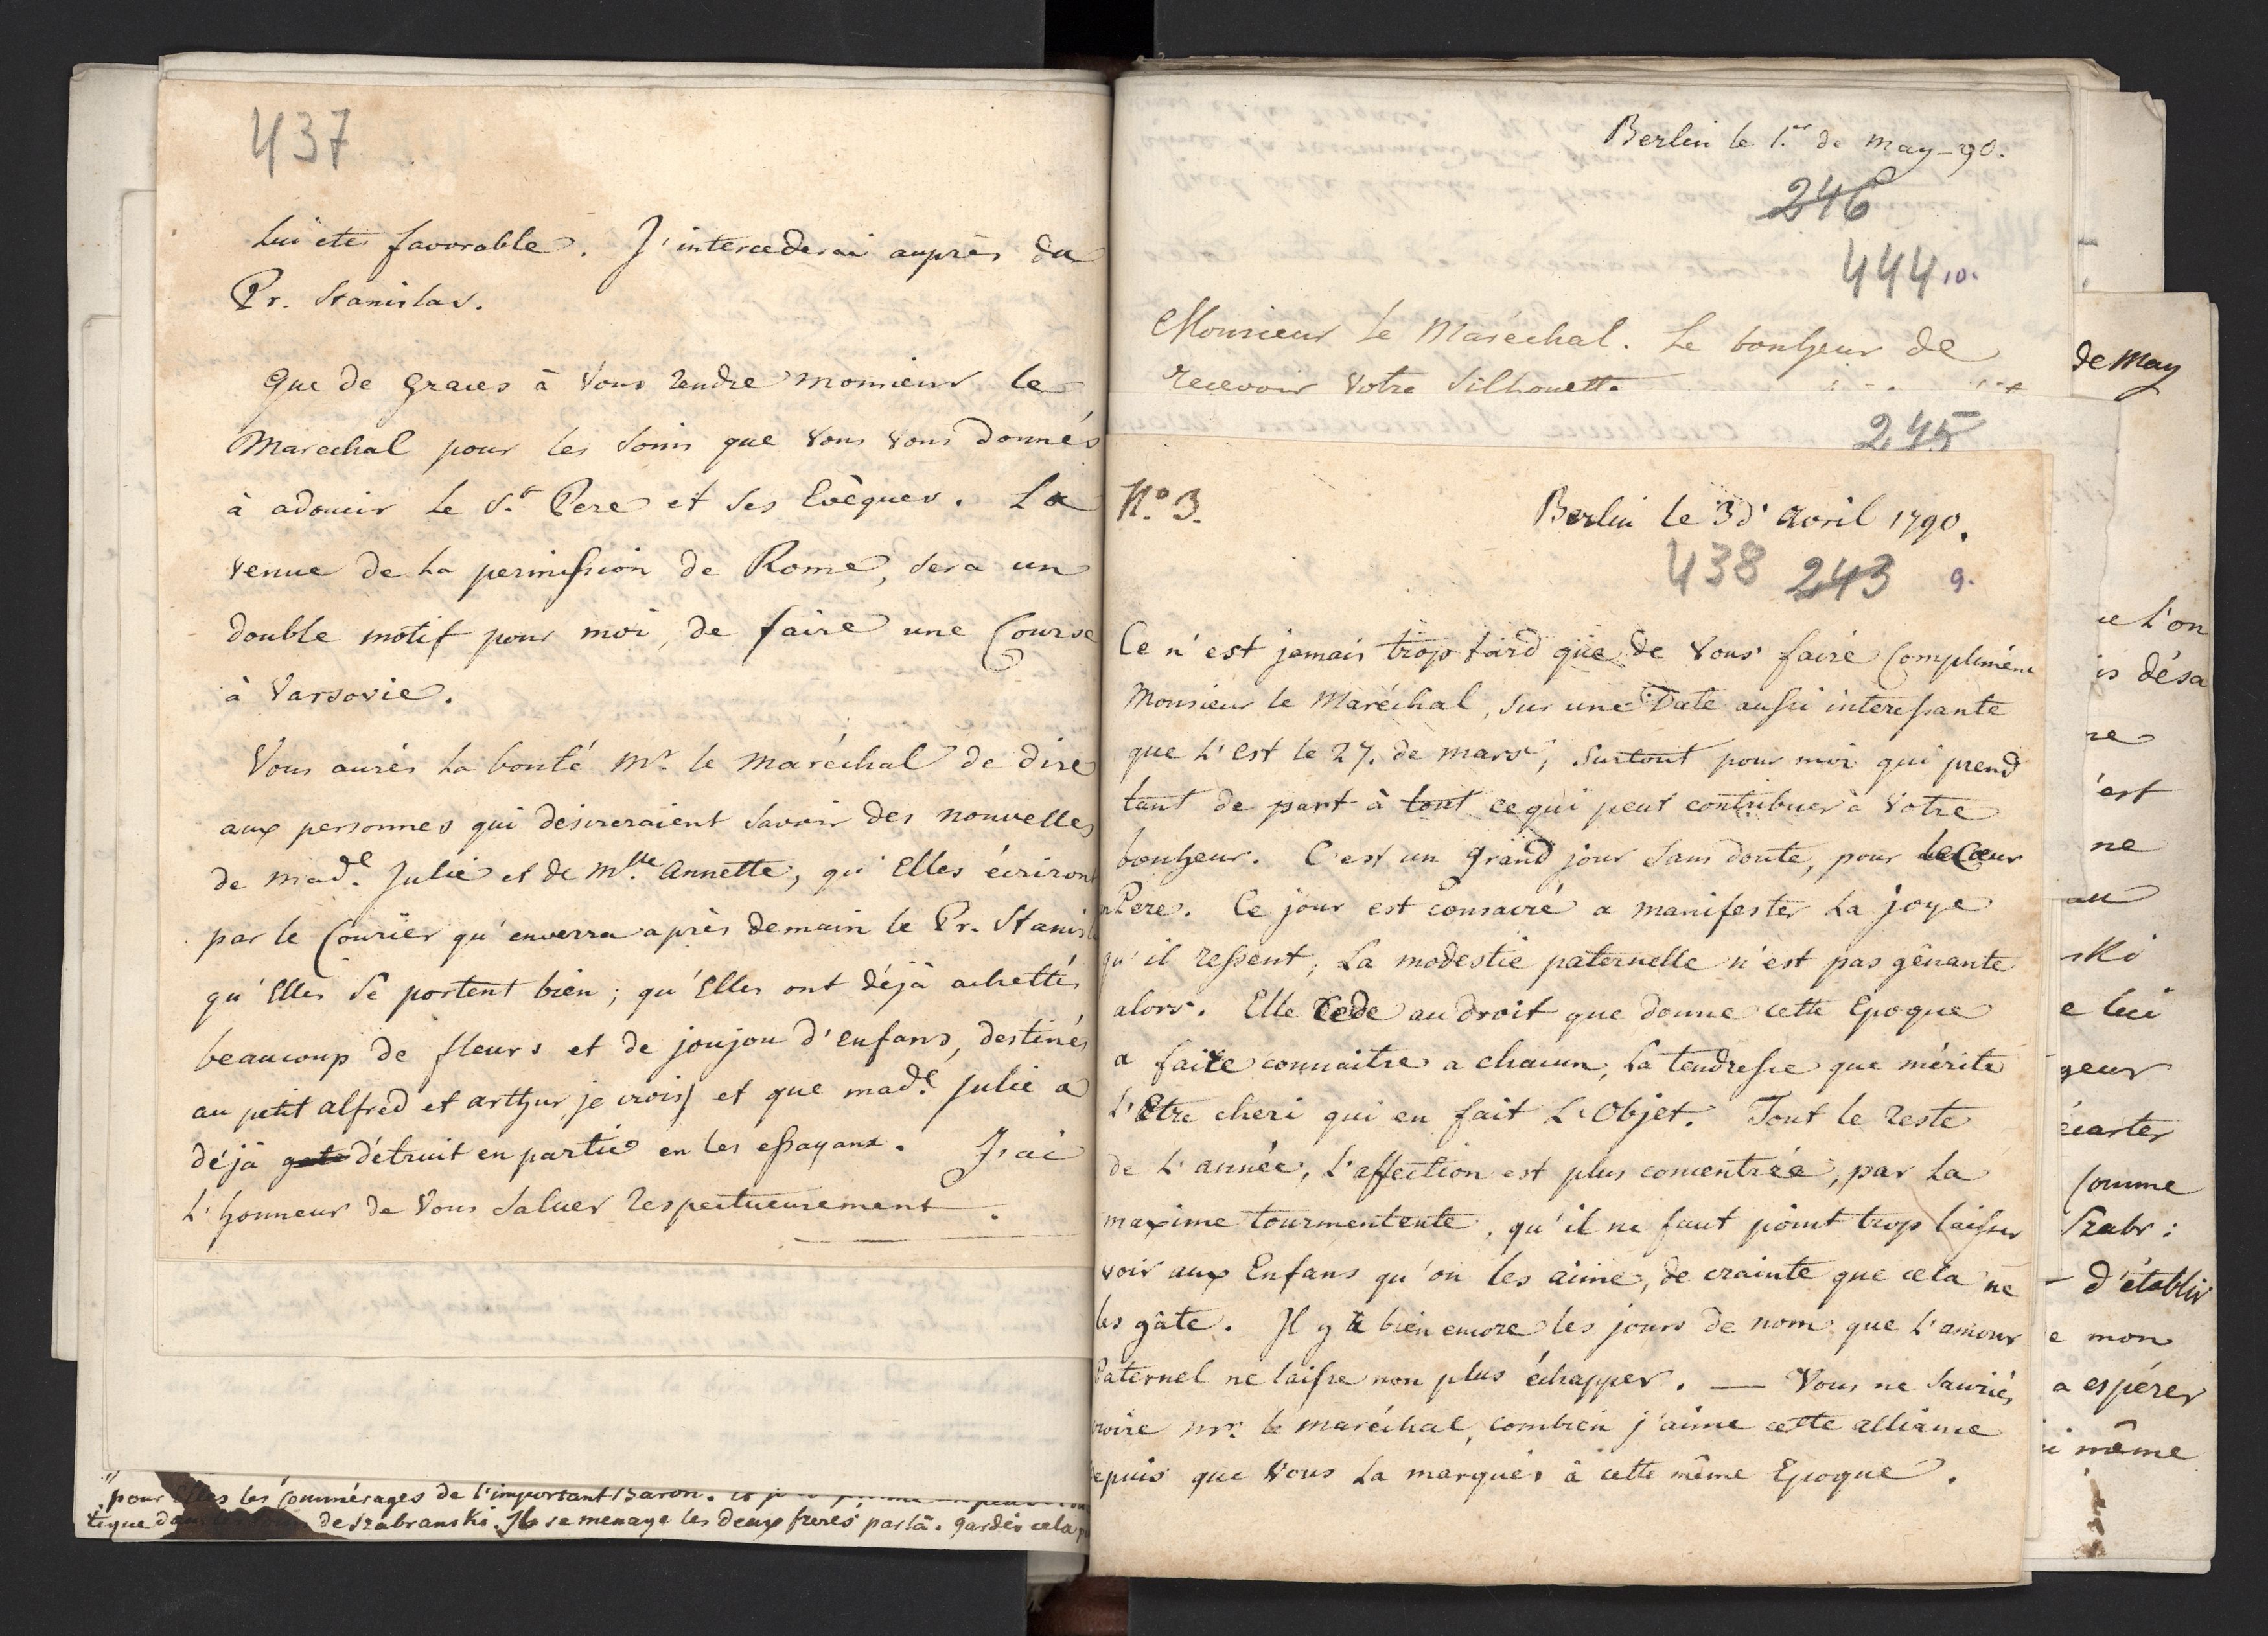 437
lui etre favorable. J'intercederai auprès du
Pr. Stanislas.
Que de graces à Vous rendre monsieur le
Marechal pour les soins que Vous Vous donnés
à adoucir le St. Pere et ses Evêques. La
venue de la permission de Rome, sera un
double motif pour moi, de faire une Course
à Varsovie.
Vous aurés la bonté Mr. le Maréchal de dire
aux personnes qui desireraient savoir des nouvelles
de Made. Julie et de Mlle. Annette, qu'Elles écriront
par le Courier qu'enverra après demain le Pr. Stanisl
qu'Elles se portent bien; qu'Elles ont déjà achettés
beaucoup de fleurs et de joujou d'enfans, destinés
au petit alfred et arthur, je crois, et que made. Julie a
déjà gaté détruit en partie en les essayant. J'ai
l'honneur de Vous saluer respectueusement.
pour Elles les Commérages de l'important Baron.
tique de Szabranski. Il se menage les deux freres par là. gardés cela
Berlin le 1.er de may - 90.
246
444 10.
Monsieur le Maréchal. Le bonheur de
recevoir Votre Silhouette
245
No. 3.
Berlin le 3 d'avril 1790.
438 243 9.
Ce n'est jamais trop tard que de Vous faire Compliment
Monsieur le Maréchal, sur une Date aussi interessante
que l'est le 27. de mars, surtout pour moi qui prend
tant de part à tout ce qui peut contribuer à Votre
bonheur. C'est un grand jour sans doute, pour le Cœur
Pere. Ce jour est consacré a manifester la joye
qu'il ressent, La modestie paternelle n'est pas gênante
alors. Elle Cede au droit que donne cette Epoque
a faire connaitre a chacun, la tendresse que mérite
l'Etre cheri qui en fait l'Objet. Tout le reste
de l'année, l'affection est plus concentrée, par la
maxime tourmentente, qu'il ne faut point trop laisser
voir aux Enfans qu'on les aime, de crainte que cela ne
les gâte. Il y a bien encore les jours de nom que l'amour
Paternel ne laisse non plus échapper. — Vous ne sauriés
croire Mr. le maréchal, combien j'aime cette alliance
depuis que Vous la marqués à cette même Epoque.
de May
ce l'on
is désa
re
'est
ne
au
ski
e lui
geur
écarter
Comme
Szabr:
d'établir
e mon
a espérer
i même